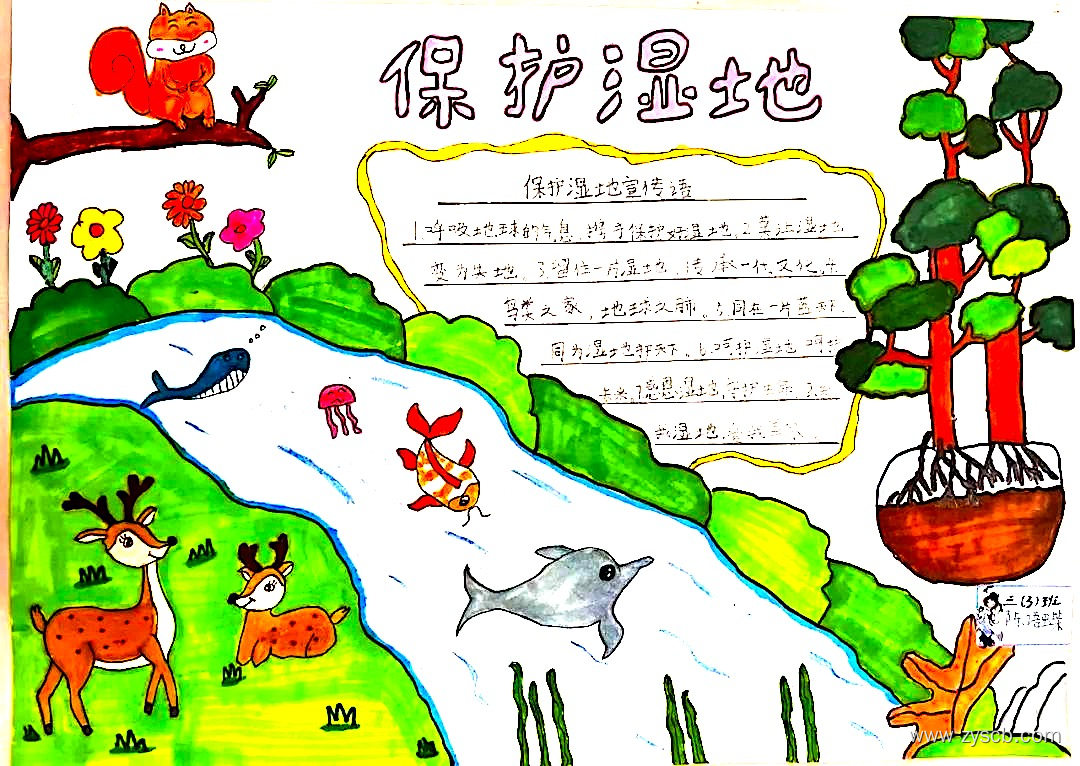 保护湿地
保护湿地宣传语
1.呼吸地球的气息,携手保护好湿地。2.莫让湿地
变为失地。3.留住一片湿地,传承一代文化。4.
鸟类之家,地球之肺。5.同在一片蓝天下,
同为湿地护天下。6.呵护湿地 呵护
未来。7.感恩湿地,守护
我湿地,
三(3)班
陈语
www.zyscb.com